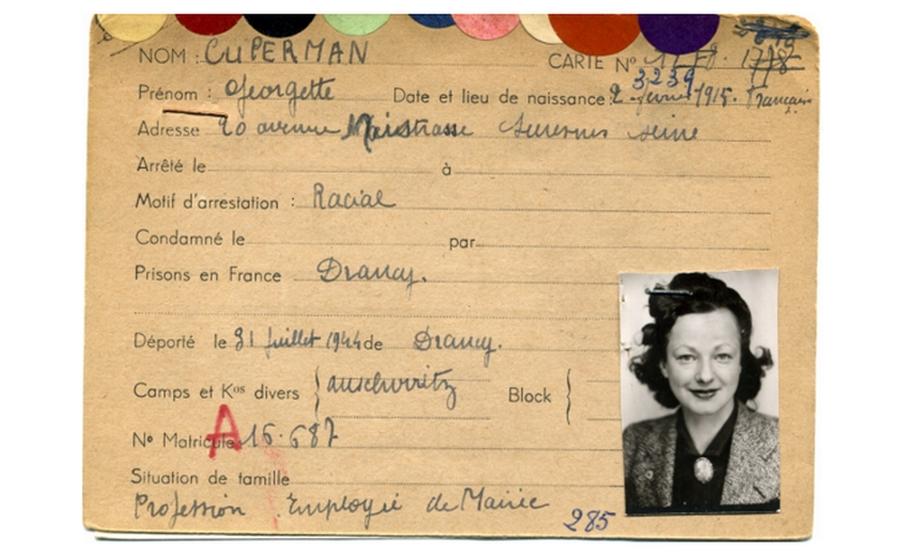 NOM : CUPERMAN CARTE Nº 17 78. 1778
3239
Prénom : Georgette Date et lieu de naissance 2 février 1915. Française
Adresse 20 avenue Suresnes Seine
Arrêté le à
Motif d'arrestation : Racial
Condamné le par
Prisons en France Drancy.
Déporté le 31 juillet 1944 de Drancy.
Camps et Kᵒˢ divers { auschwitz Block {
Nº Matricule A 16.687
Situation de famille
Profession Employée de Mairie
285